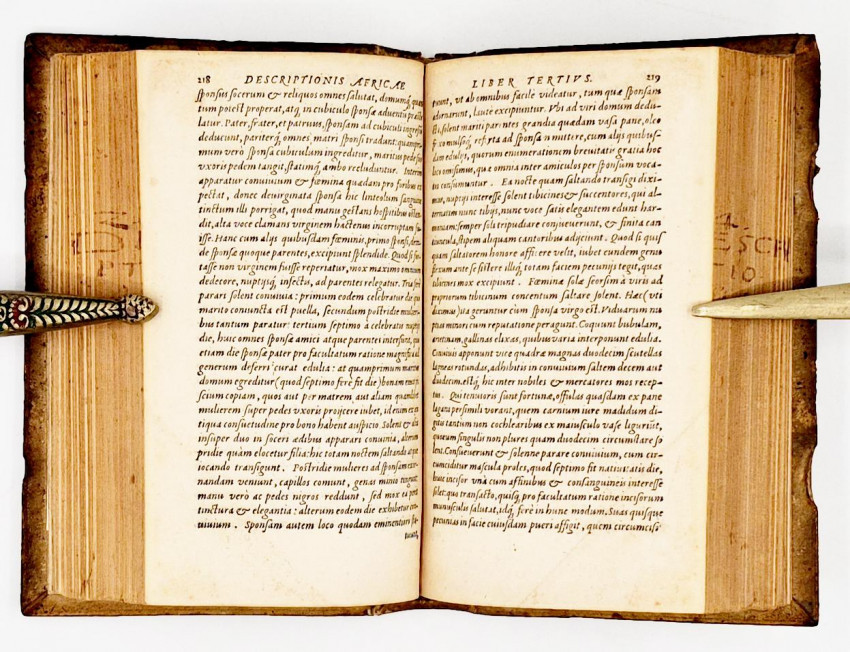 218 DESCRIPTIONIS AFRICAE
sponsus socerum & reliquos omnes salutat, domumq́;
tum potest properat, atq; in cubiculo sponsæ aduentū
latur. Pater, frater, et patruus, sponsam ad cubiculi
deducunt, pariterq́; omnes matri sponsi tradunt:
mum verò sponsa cubiculum ingreditur, maritus pede
vxoris pedem tangit, statimq́; ambo recluduntur. Interea
apparatur conuiuium & fœmina quædam pro foribus
pectat, donec deuirginata sponsa hic linteolum
tinctum illi porrigat, quod manu gestans hospitibus
dit, alta voce clamans virginem hactenus incorruptam
isse. Hanc cum alijs quibusdam fœminis, primo sponsi,
de sponsæ quoque parentes, excipiunt splendide. Quod si
tasse non virginem fuisse reperiatur, mox maximo
dedecore, nuptijsq́; infectis, ad parentes relegatur. Tria
parari solent conuiuia: primum eodem celebratur die
marito coniuncta est puella, secundum postridie
bus tantum paratur: tertium septimo à celebratis
die, huic omnes sponsæ amici atque parentes intersunt,
etiam die sponsæ pater pro facultatum ratione
generum deferri curat edulia: at quamprimum
domum egreditur (quod septimo ferè fit die)
scium copiam, quos aut per matrem, aut aliam quandam
mulierem super pedes vxoris proijcere iubet, idemum
tiqua consuetudine pro bono habent auspicio. Solent &
insuper duo in soceri ædibus apparari conuiuia, alterum
pridie quàm elocetur filia: hic totam noctem saltando
iocando transigunt. Postridie mulieres ad sponsam
nandam veniunt, capillos comunt, genas minio
manu verò ac pedes nigros reddunt, sed mox ea perit
tinctura & elegantia: alterum eodem die exhibetur
uiuium. Sponsam autem loco quodam eminentiori
LIBER TERTIVS. 219
tuunt, vt ab omnibus facile videatur, tum quæ sponsam
adornarunt, lautè excipiuntur. Vbi ad viri domum dedu-
solent mariti parentes grandia quædam vasa pane, oleo
mulsoq́; referta ad sponsam mittere, cum alijs quibus-
dam edulijs, quorum enumerationem breuitatis gratia hoc
loco omisimus, quæ omnia inter amiculos per sponsum voca-
consumuntur. Ea nocte quam saltando transigi dixi-
mus, nuptijs interesse solent tibicines & successores, qui al-
ternatim nunc tibijs, nunc voce satis elegantem edunt har-
moniam: semper soli tripudiare consueuerunt, & finita can
tiuncula, stipem aliquam cantoribus adijciunt. Quod si quis
quam saltatorem honore afficere velit, iubet eundem genu
flexum ante se sistere illiq́; totam faciem pecunijs tegit, quas
tibicines mox excipiunt. Fœminæ solæ seorsim à viris ad
propriorum tibicinum concentum saltare solent. Hæc (vti
diximus) ita geruntur cùm sponsa virgo est. Viduarum nu
ptias minori cum reputatione peragunt. Coquunt bubulam,
gallinas elixas, quibus varia interponunt edulia.
Conuiuis apponunt vice quadræ magnas duodecim scutellas
ligneas rotundas, adhibitis in conuiuium saltem decem aut
duodecim, estq́; hic inter nobiles & mercatores mos recep-
tus. Qui tenuioris sunt fortunæ, offulas quasdam ex pane
persimili vorant, quem carnium iure madidum di-
gitis tantum non cochlearibus ex maiusculo vase liguriūt,
quorum singulis non plures quam duodecim circumstare so
lent. Consueuerunt & solenne parare conuiuium, cum cir-
cumciditur mascula proles, quod septimo fit natiuitatis die,
huic incisor vnà cum affinibus & consanguineis interesse
solet: quo transacto, quisq; pro facultatum ratione incisorum
munusculis salutat, idq́; ferè in hunc modum. Suas quisque
pecunias in facie cuiusdam pueri affigit, quem circumcisi-